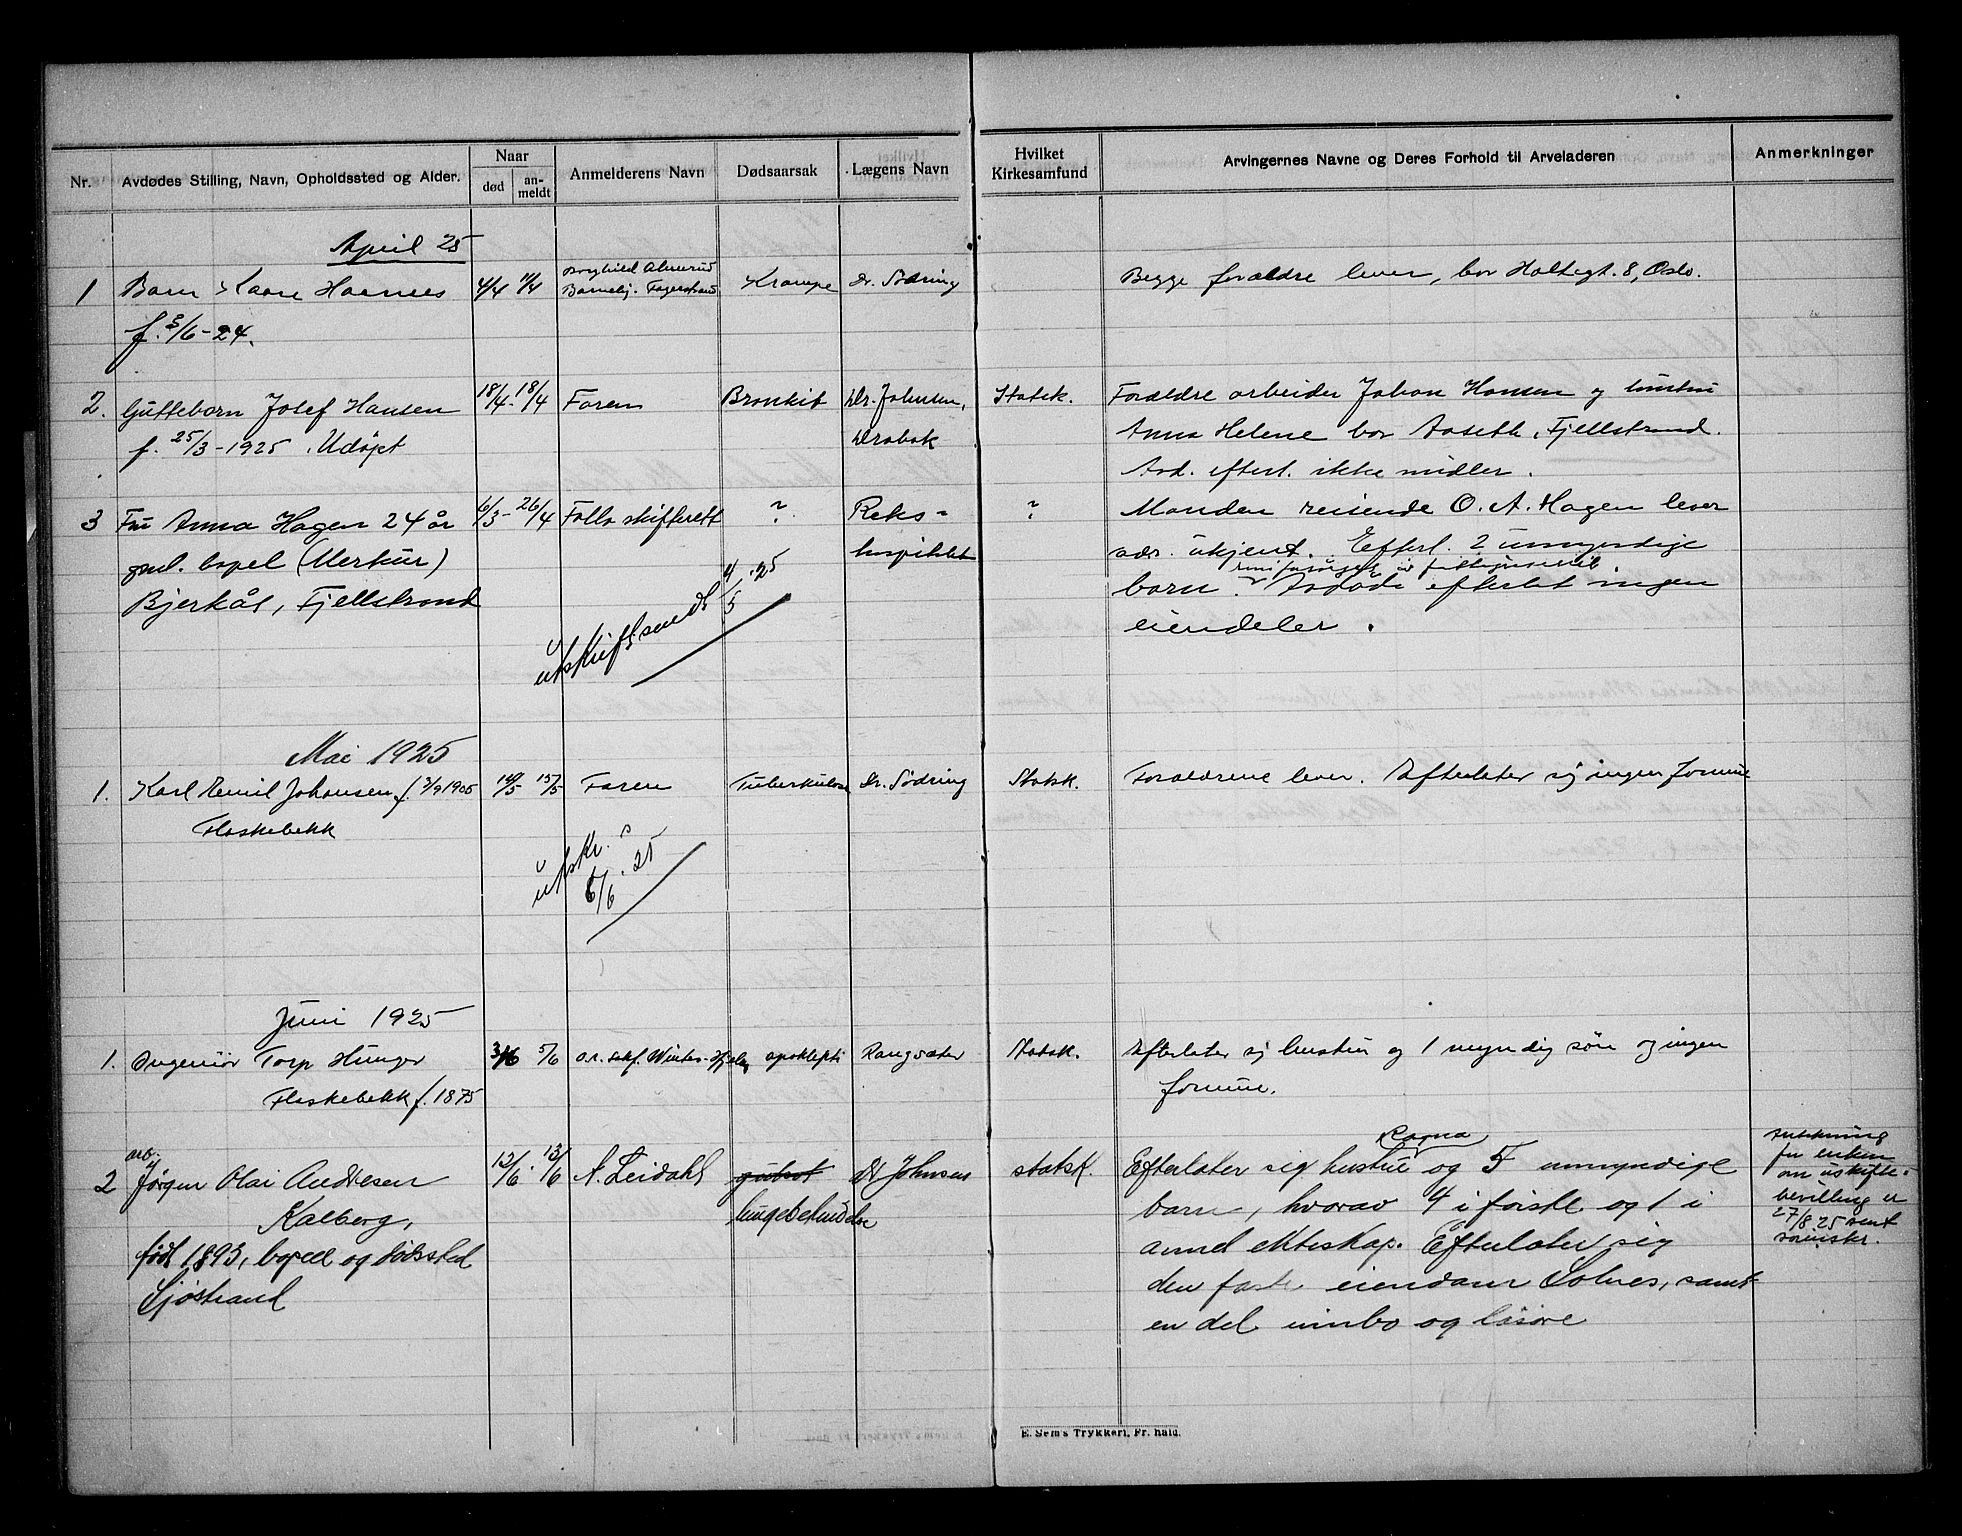 Nr. Avdødes Stilling, Navn, Opholdssted og Alder. Naar død an-meldt Anmelderens Navn Dødsaarsak Lægens Navn Hvilket Kirkesamfund Arvingernes Navne og Deres Forhold til Arveladeren Anmerkninger
April 25
1 Barn Kaare 4/4 11/4 Borghild Krampe Dr. Södring Begge forældre lever, bor Holtegt. 8, Oslo.
Barnehj. Fagerstrand
f. 5/6-24.
2. Guttebarn Josef Hansen 18/4 - 18/4 Faren Bronkit Dr. Johnsen, Statsk. Forældre arbeider Johan Hansen og hustru
f. 25/3-1925. Udøpt Drøbak Anna Helene bor Aaseth, Fjellstrand.
Avd. efterl. ikke midler.
3 Fru Anna Hagen 24 år 6/3 - 26/4 Follo skifterett ? Riks- ? Manden reisende O. A. Hagen lever
gml. bopel (Merkur) hospitalet adr. ukjent. Efterl. 2 umyndige
Bjerkås, Fjellstrand barn. Avdøde efterlot ingen
eiendeler.
utskrift sendt 4/5.25
Mai 1925
1. Karl Emil Johansen f. 3/9 1905 14/5 15/5 Faren Tuberkulose Dr. Södring Statsk. Forældrene lever. Efterlater sig ingen formue
Flaskebekk
utskr. s. 6/6.25
Juni 1925
1. Ingeniör Torp Hunger 3/6 5/6 o.r. sakf. Winter-Hjelm apoklepti Rangsæter Statsk. Efterlater sig hustru og 1 myndig sön og ingen
Flaskebekk f. 1875 formue.
arb. Ragna
2 Jørgen Olai Andresen 12/6. 13/6 A. Leidahl Dr Johnsen statsk. Efterlater sig hustru og 5 umyndige
Kalberg, lungebetendelse barn, hvorav 4 i første og 1 i
født 1893, bopæl og dødssted annet ekteskap. Efterlater sig
Sjøstrand den faste eiendom Solnes, samt
en del innbo og løsøre
Anmerkning
for enken
om uskifte-
bevilling er
27/8.25 sent
sorenskr.
E. Sem's Trykkeri, Fr.hald.